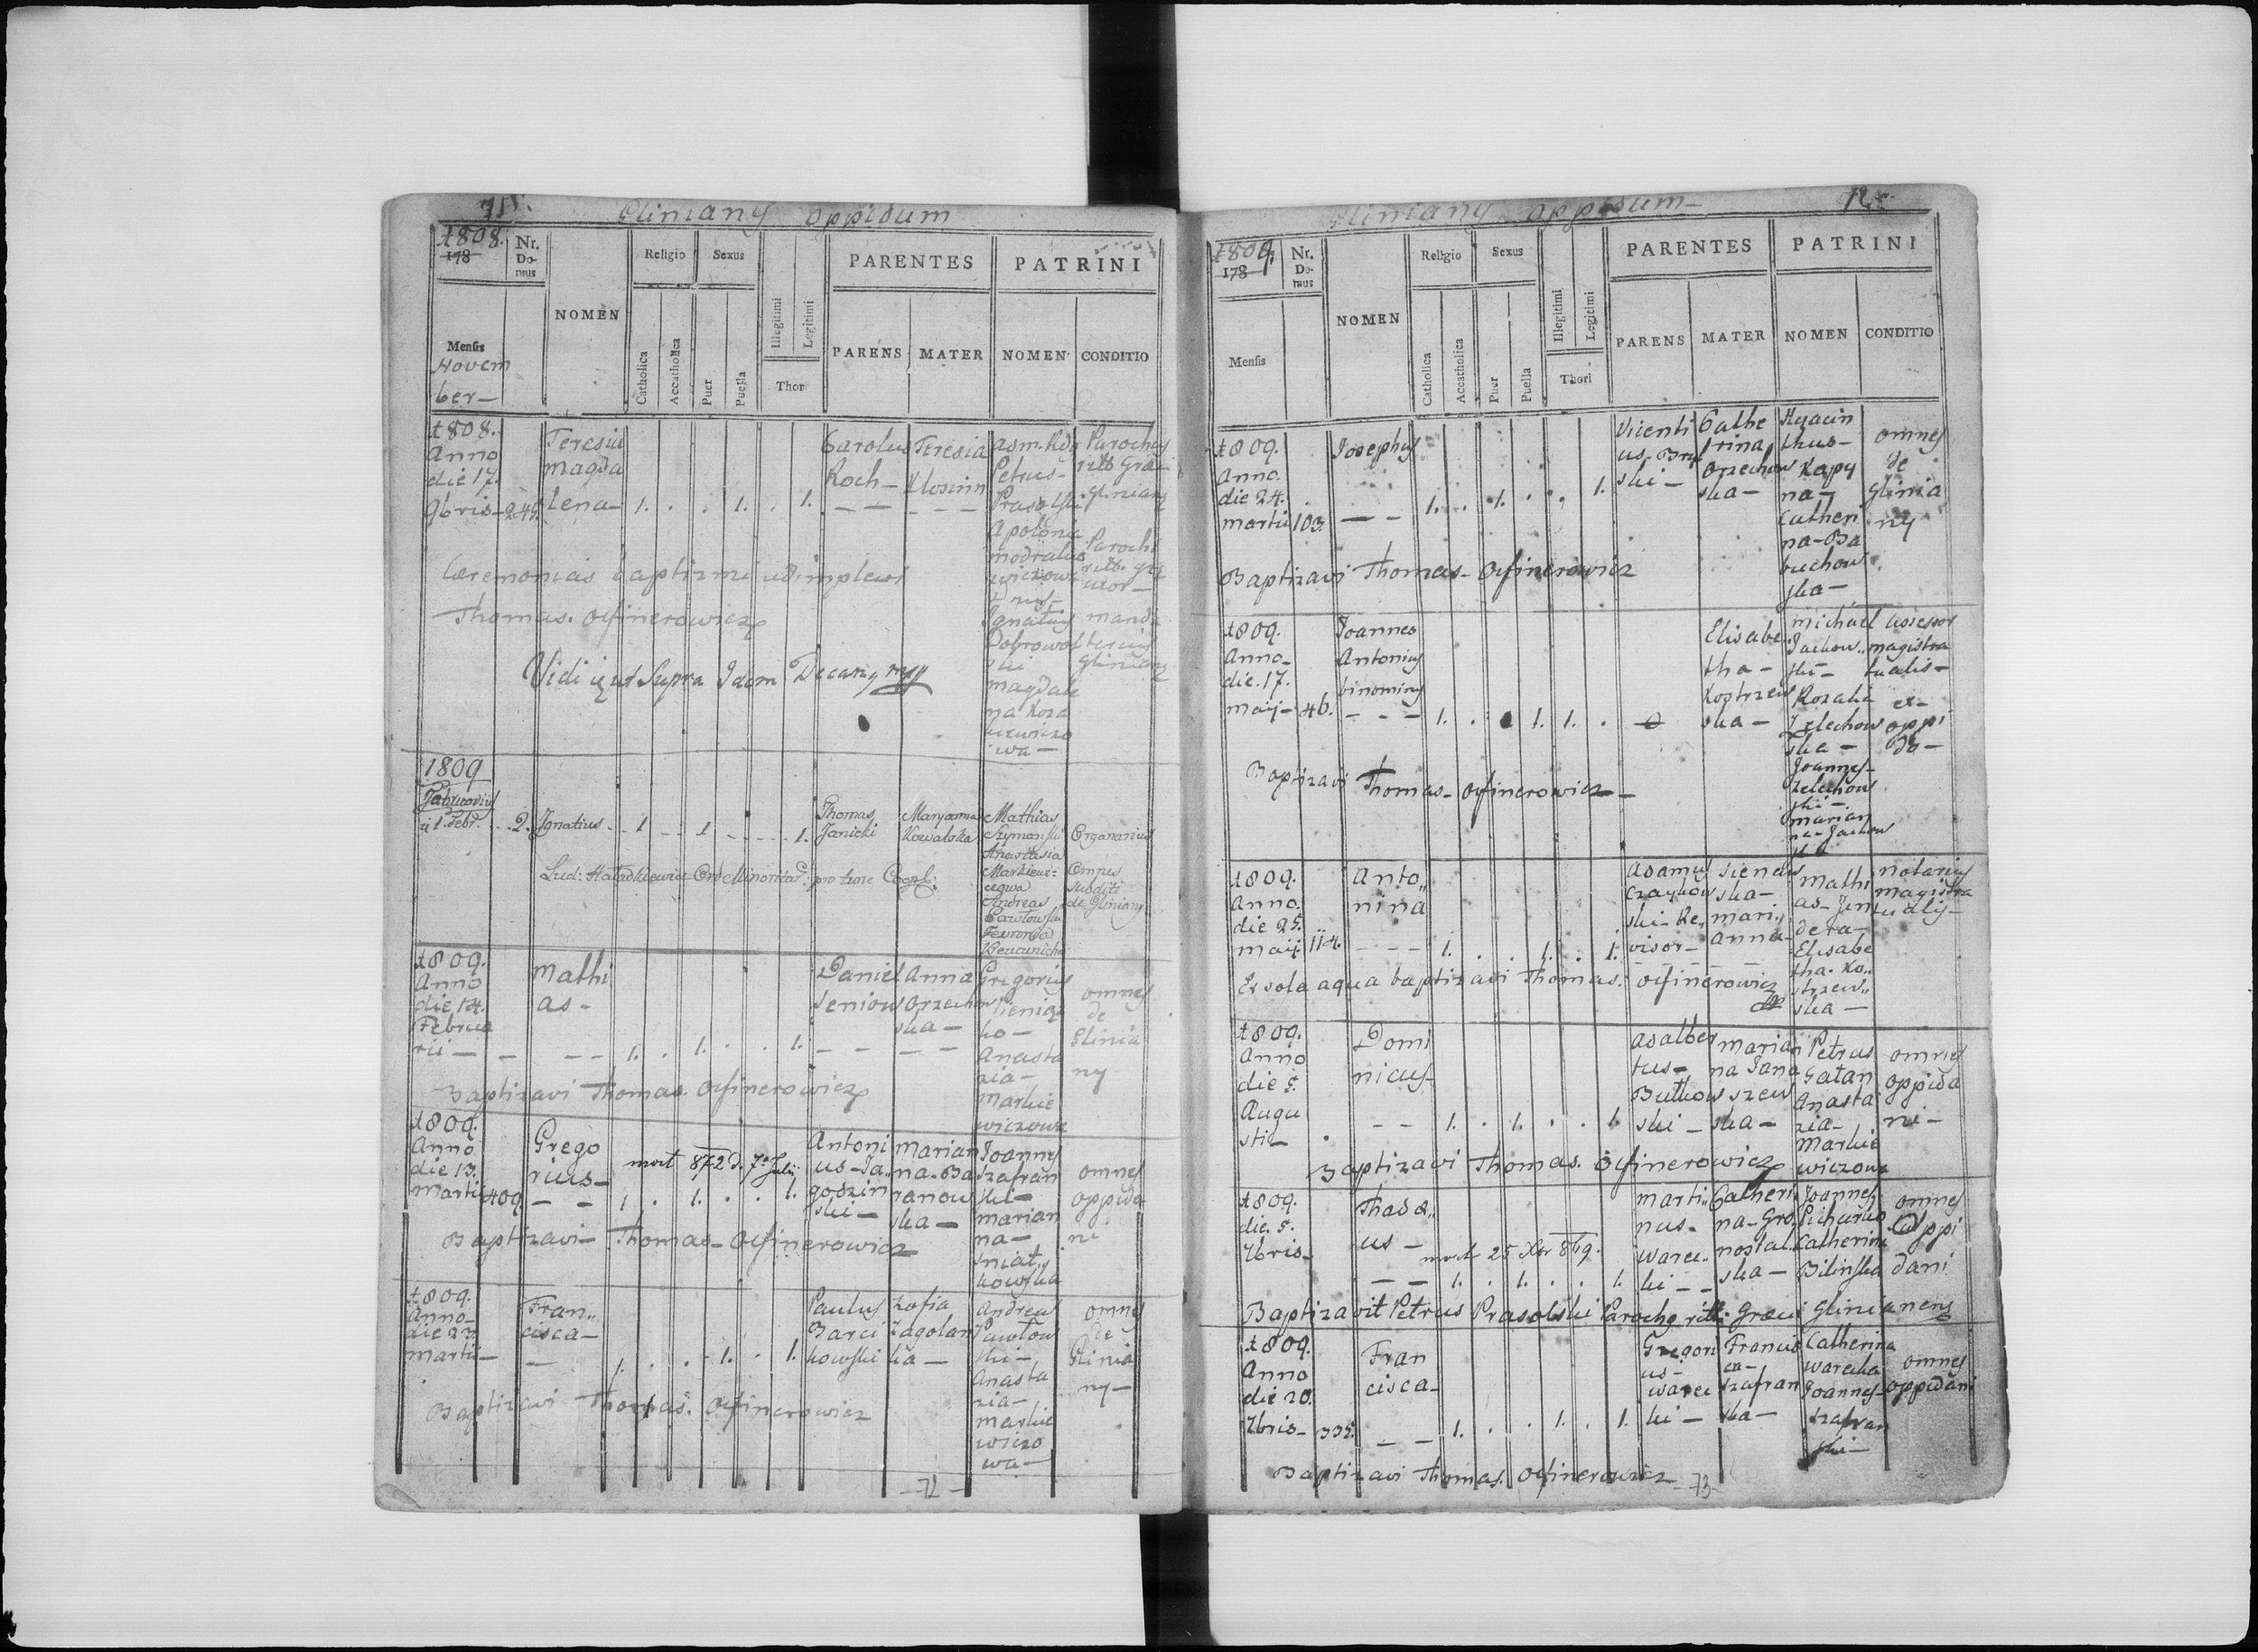 71.
Gliniany oppidum
1808.
178
Nr.
Do-
mus
NOMEN
Religio
Sexus
Illegitimi
Legitimi
PARENTES
PATRINI
Mensis
Novem
ber-
Catholica
Accatholica
Puer
Puella
Thor
PARENS
MATER
NOMEN
CONDITIO
1808.
Anno
die 17.
9bris- 249.
Teresia
Magda
lena- 1. . . 1. . 1.
Carolus
Roch-
Teresia
Klosinn
Petrus-
Prasolski
Apolonia
Parochus
Gliniany
Parochi
Ceremonias baptizmi adimplevi
Thomas. Ofinerowicz
Ignatius
Dobrowol
ski
Magdale
na Koza
wa-
Gliniany
Vidi ut Supra Idem Decany mp
1809
Februarius
1. Febr. 2. Ignatius - 1 - - 1 - - - 1.
Thomas
Janicki
Maryanna
Kowalska
Mathias
Szymanski
Anastasia
Markiewi=
Andreas
Pawlowski
Organarius
Omnes
subditi
de Gliniany
1809.
Anno
die 14.
Februa
rii-
Mathi
as-
1. . 1. . . 1.
Daniel
Seniow
Anna
Orzechow
ska-
Gregorius
Pieniąz
ko-
Anasta
zia-
Markie
wiczowa
omnes
de
Glinia
ny
Baptizavi Thomas. Ofinerowicz
1809.
Anno
die 13.
Martii 409.
Grego
rius-
mort 872 d. 7a Julii
1. . 1. . . 1.
Antoni
us- Ja
godzin
ski-
Marian
na-Ba
ranow
ska-
Joannes
Szafran
ski-
Marian
na-
Sniat,
kowska
omnes
oppida
ni
Baptizavi- Thomas- Ofinerowicz
1809.
Anno-
die 22
Martii-
Fran,,
cisca-
1. . . 1. . 1.
Paulus
Barci
kowski
Zofia
Zagolan
ka-
Andreas
Pawlow
ski-
Anasta
zia-
Markie
wiczo
wa-
omnes
de
Glinia
ny-
Baptizavi Thomas. Ofinerowicz
-72-
Gliniany oppidum-
72.
1809.
178
Nr.
Do-
mus
NOMEN
Religio
Sexus
Illegitimi
Legitimi
PARENTES
PATRINI
Mensis
Catholica
Accatholica
Puer
Puella
Thori
PARENS
MATER
NOMEN
CONDITIO
1809.
Anno.
die 24.
Martii 103.
Josephus
1. . 1. . . 1.
Vicenti
ski-
Cathe
rina
Orzechow
ska-
Hyacin
thus-
Kapy
na-
Catheri
na-Ba
buchow
ska-
omnes
de
Glinia
ny
Baptizavi Thomas- Ofinerowicz
1809.
Anno-
die. 17.
Maij- 46.
Joannes
Antonius
binominus
- - - 1. . 1. 1. .
Elisabe
tha-
Kostrzew
ska-
Michael
Jachow,,
ski-
Rozalia
Zelechow
ska-
Joannes-
Zelechow
ski-
Marian
na-Jachow
ska
Assessor
magistra
tualis-
ex-
oppi
do-
Baptizavi Thomas- Ofinerowicz-
1809.
Anno.
die 25.
Maij 114.
Anto,,
nina
- - - 1. . . 1. . 1.
Adamus
Czaykow
ski-Re,,
visor-
Sienaw
ska-
Mari,,
anna-
Mathi
as-Jen
dera-
Elisabe
tha. Ko,,
strzew,,
ska-
notarius
magistra
tualis-
Ex sola aqua baptizavi Thomas. Ofinerowicz
1809.
Anno
die 5.
Augu
sti-
Domi
nicus-
- - 1. . 1. . . 1.
Adalber
tus-
Butkow
ski-
Marian
na Jana
szew
ska-
Petrus
Gatan
Anasta
zia-
Markie
wiczowa
omnes
oppida
ni-
Baptizavi Thomas. Ofinerowicz
1809.
die. 5.
7bris-
Thadæ,,
us-
mort 25 Xbr 819.
- - 1. . 1. . . 1.
Marti,,
nus-
Warec-
ki--
Catheri
na-Gro,,
nostal
ska-
Joannes
Picharko
Catherina
Bilinska
omnes
Oppi
dani
Baptizavit Petrus Prasolski Parochus ritt: Græci Glinianens
1809.
Anno
die 20.
7bris- 335.
Fran
cisca-
- - 1. . . 1. . 1.
Gregori
us-
Warec
ki-
Francis
ca-
Szafran
ska-
Catherina
Warecka
Joannes-
Szafran
ski-
omnes
oppidani
Baptizavi Thomas. Ofinerowicz
-73-